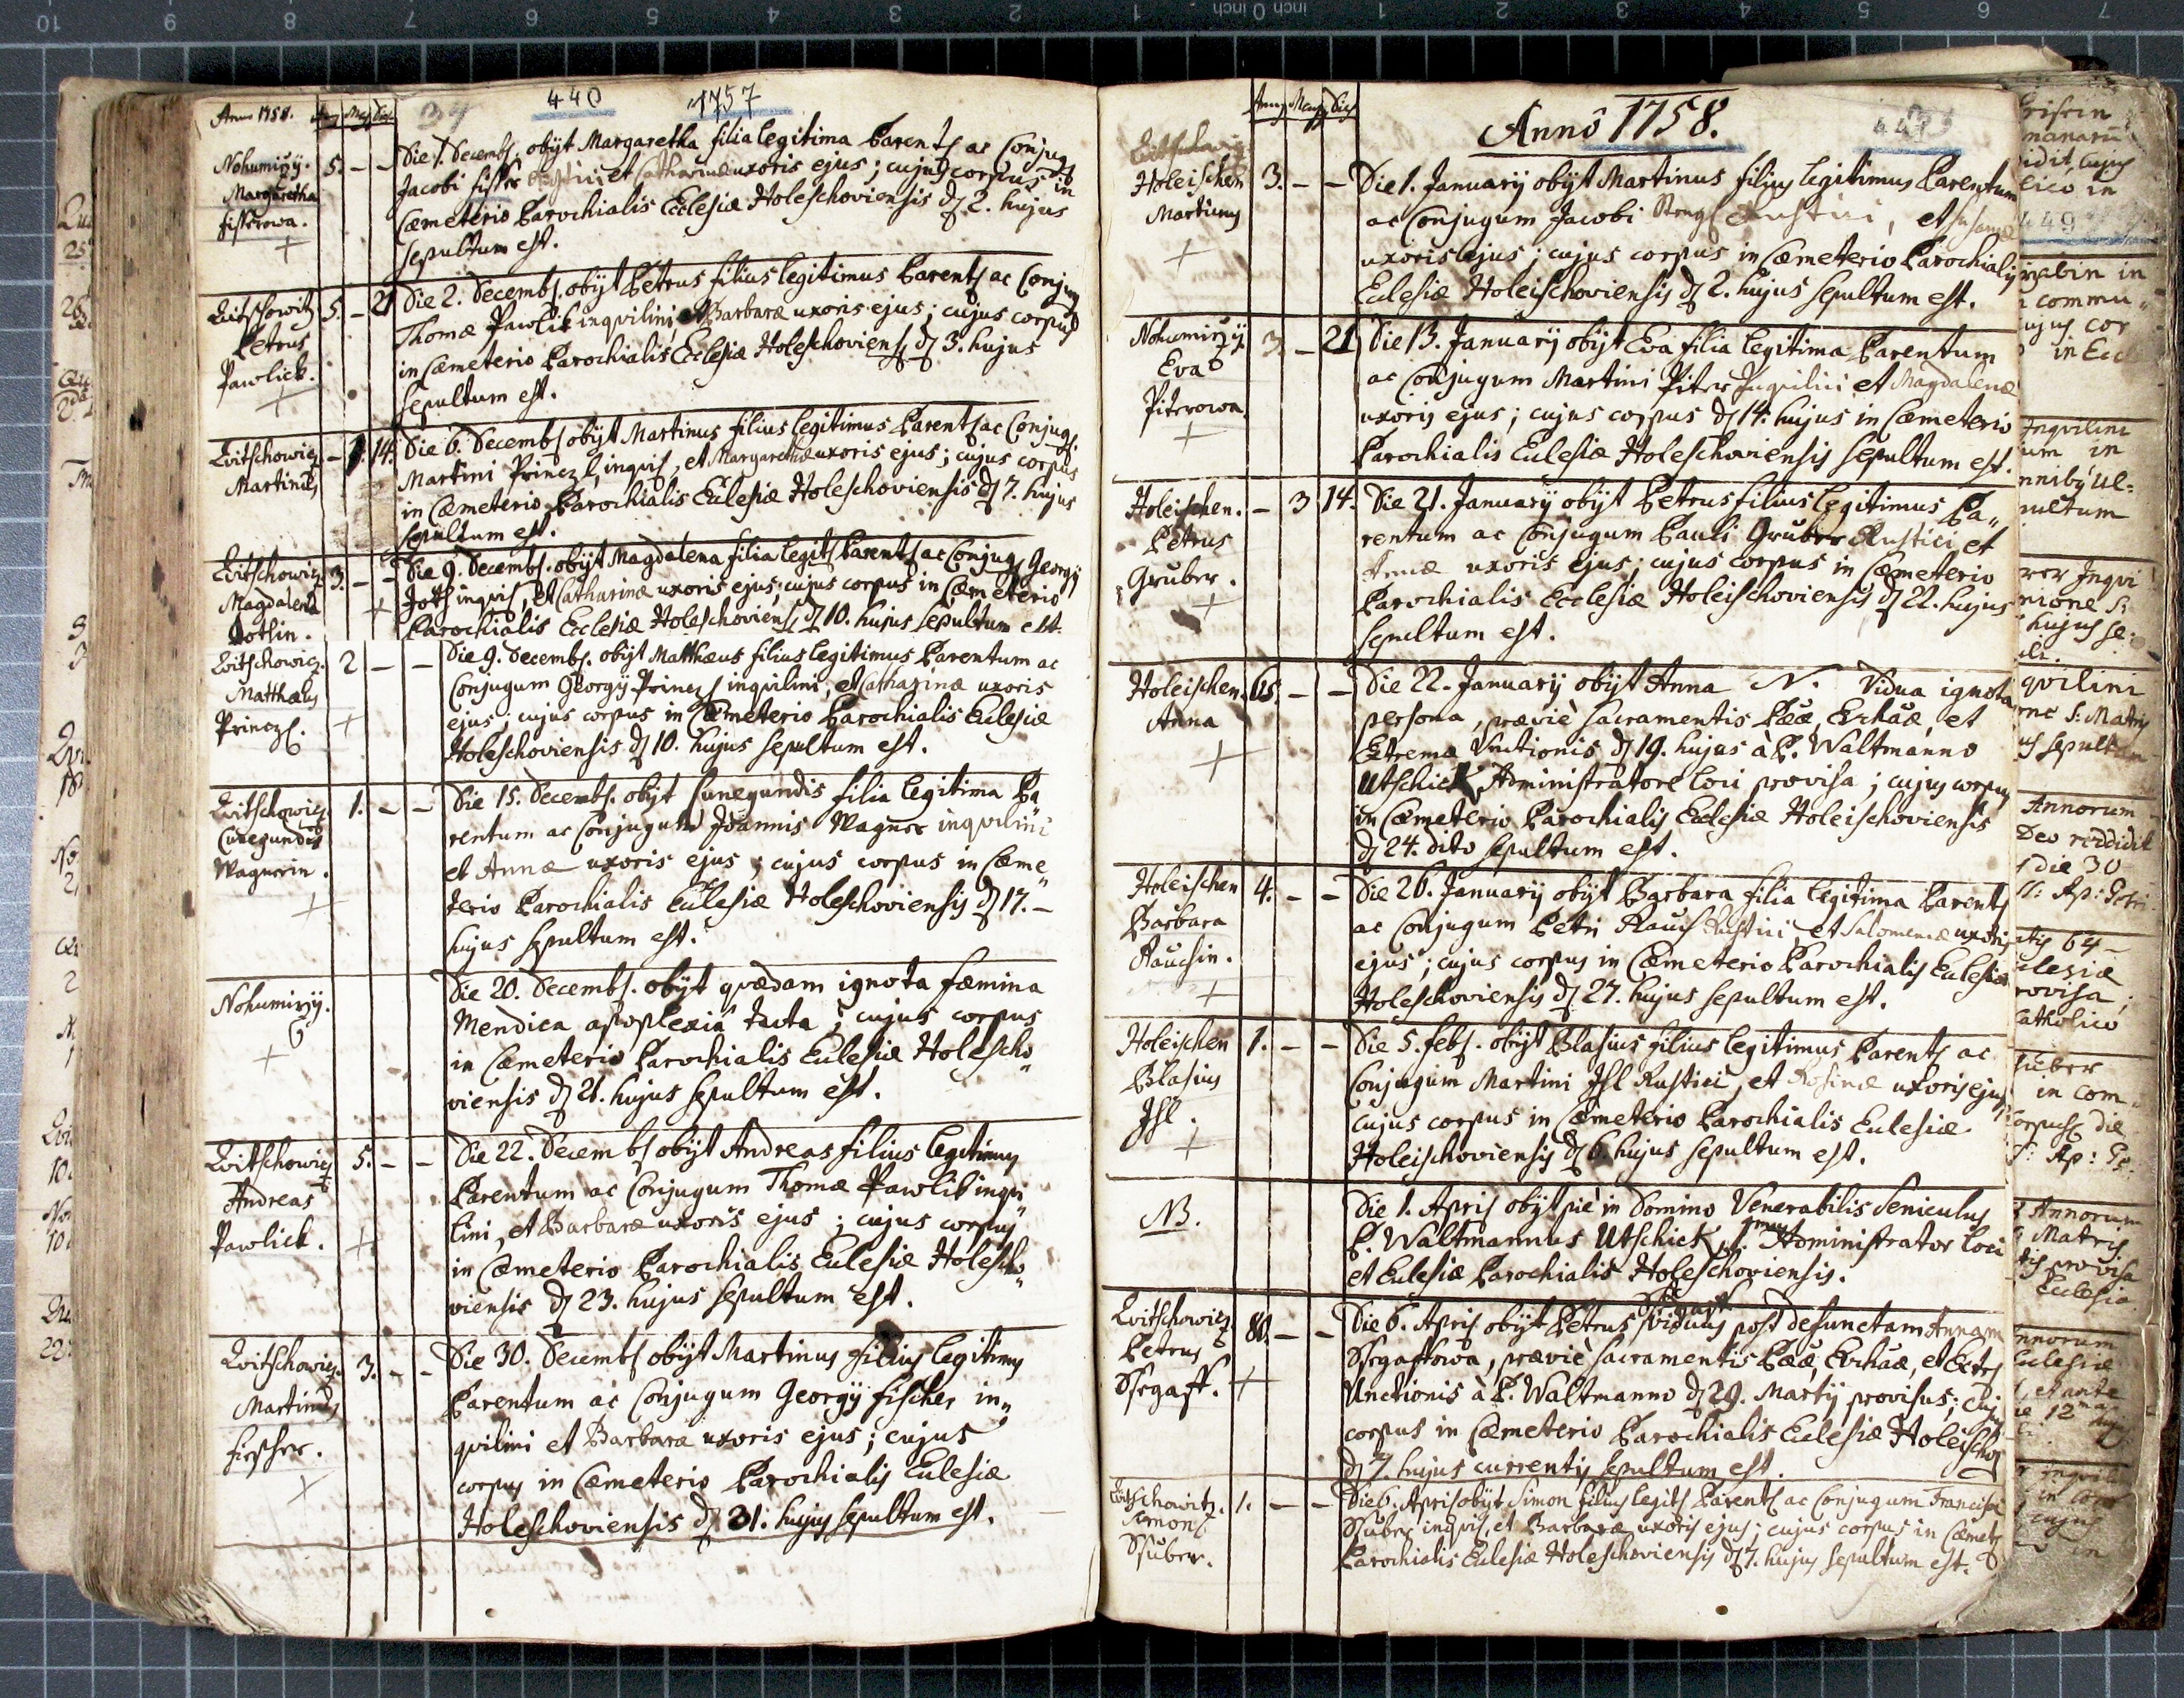 Anno 1758. Any Mens Dies
440 1757
Nohumirzÿ. 5. – –
Margaretha
fisserowa.
Die 1. Decembs. obÿt Margaretha filia legitima Parents ac Conjugs
Jacobi fisser et Catharinæ uxoris ejus; cujus corpus in
Cæmeterio Parochialis Ecclesiæ Holeschoviensis d 2. hujus
sepultum est.
Petrus 5. – 21
Pawlick.
Die 2. Decembs. obÿt Petrus filius legitimus Parents ac Conjug
Thomæ Pawlik inqvilini et Barbaræ uxoris ejus; cujus corpus
in Cæmeterio Parochialis Ecclesiæ Holeschoviens d 3. hujus
sepultum est.
Qvitschowicz – 1. 14.
Martinus
Die 6. Decembs obÿt Martinus filius legitimus Parents ac Conjugs.
Martini Princzl, inqvis, et Margarethæ uxoris ejus; cujus corpus
in Cæmeterio Parochialis Eclesiæ Holeschoviensis d 7. hujus
sepultum est.
Qvitschowicz 3. – –
Magdalena
Die 9. Decembs. obÿt Magdalena filia legits Parents ac Conjugs Georgÿ
inqvis, et Catharinæ uxoris ejus; cujus corpus in Cæmeterio
Parochialis Ecclesiæ Holeschoviens d 10. hujus sepultum est.
Qvitschowicz. 2 – –
Matthæus
Princzl.
Die 9. Decembs. obÿt Matthæus filius legitimus Parentum ac
Conjugum Georgÿ Princzl inqvilini, et Catharinæ uxoris
ejus; cujus corpus in Cæmeterio Parochialis Eclesiæ
Holeschoviensis d 10. hujus sepultum est.
Qvitschowicz 1. – –
Cunegundis
Wagnerin.
Die 15. Decembs. obÿt Cunegundis filia legitima Pa„
rentum ac Conjugum Joannis Wagner inqvilini
et Annæ uxoris ejus; cujus corpus in Cæme„
terio Parochialis Eclesiæ Holeschoviensis d 17. –
hujus sepultum est.
Nohumirzÿ.
Die 20. Decembs. obÿt qvædam ignota fæmina
Mendica apoplexiâ tacta; cujus corpus
in Cæmeterio Parochialis Eclesiæ Holescho„
viensis d 21. hujus sepultum est.
Qvitschowicz 5. – –
Andreas
Pawlick.
Die 22. Decembs obÿt Andreas filius legitimus
Parentum ac Conjugum Thomæ Pawlik inqvi„
lini, et Barbaræ uxoris ejus; cujus corpus
in Cæmeterio Parochialis Eclesiæ Holescho„
viensis d 23. hujus sepultum est.
Qvitschowicz. 3. – –
Martinus
fischer.
Die 30. Decembs obÿt Martinus filius legitimus
Parentum ac Conjugum Georgÿ fischer in„
qvilini et Barbaræ uxoris ejus; cujus
corpus in Cæmeterio Parochialis Eclesiæ
Holeschoviensis d 31. hujus sepultum est.
Any Mens Dies
Annô 1758.
Holeischen 3. – –
Martinus
Die 1. Januarÿ obÿt Martinus filius legitimus Parentum
ac Conjugum Jacobi Rustici, et Susannæ
uxoris ejus; cujus corpus in Cæmeterio Parochialis
Eclesiæ Holeischoviensis d 2. hujus sepultum est.
Nohumirzÿ 3. – 21
Eva
Piterowa.
Die 13. Januarÿ obÿt Eva filia legitima Parentum
ac Conjugum Martini Piter Inqvilini et Magdalenæ
uxoris ejus; cujus corpus d 14. hujus in Cæmeterio
Parochialis Eclesiæ Holeschoviensis sepultum est.
Holeischen. – 3 14.
Petrus
Gruber.
Die 21. Januarÿ obÿt Petrus filius legitimus Pa„
rentum ac Conjugum Pauli Gruber Rustici et
Annæ uxoris ejus; cujus corpus in Cæmeterio
Parochialis Ecclesiæ Holeischoviensis d 22. hujus
sepultum est.
Holeischen. 65. – –
Anna
Die 22. Januarÿ obÿt Anna N. Vidua ignota
persona, præviè sacramentis Pææ, Erhææ, et
Extremæ Unctionis d 19. hujus à P. Waltmanno
Utschick Administratore loci provisa; cujus corpus
in Cæmeterio Parochialis Eclesiæ Holeischoviensis
d 24. dito sepultum est.
Holeischen 4. – –
Barbara
Rauchin.
Die 26. Januarÿ obÿt Barbara filia legitima Parents
ac Conjugum Petri Rauch Rustici et Salomenæ uxoris
ejus; cujus corpus in Cæmeterio Parochialis Eclesiæ
Holeschoviensis d 27. hujus sepultum est.
Holeischen 1. – –
Blasius
Ihl.
Die 5. febs. obÿt Blasius filius legitimus Parents ac
Conjugum Martini Ihl Rustici, et Rosinæ uxoris ejus
cujus corpus in Cæmeterio Parochialis Eclesiæ
Holeischoviensis d 6. hujus sepultum est.
NB.
Die 1. Apris obÿt piè in Domino Venerabilis Seniculus
P. Waltmannus Utschick, Administrator loci
et Eclesiæ Parochialis Holeschoviensis.
Qvitschowicz 80. – –
Petrus
Ssrgast.
Die 6. Apris obÿt Petrus viduus post defunctam Annam
Ssrgastowa, præviè sacramentis Pææ, Erhææ, et Extrs
Unctionis à P. Waltmanno d 29. Martÿ provisus; cujus
corpus in Cæmeterio Parochialis Eclesiæ Holeischos
d 7. hujus currentis sepultum est.
Qvitschowitz. 1. – –
Simon
Ssuber.
Die 6. Apris obÿt Simon filius legits Parents ac Conjugum Francisci
Ssuber inqvis, et Barbaræ uxoris ejus; cujus corpus in Cæmets
Parochialis Eclesiæ Holeschoviensis d 7. hujus sepultum est.